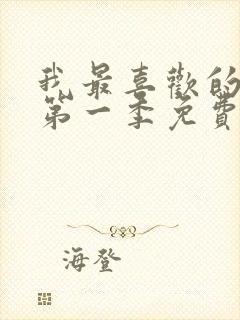 我最喜歡的
第一季免費
海登